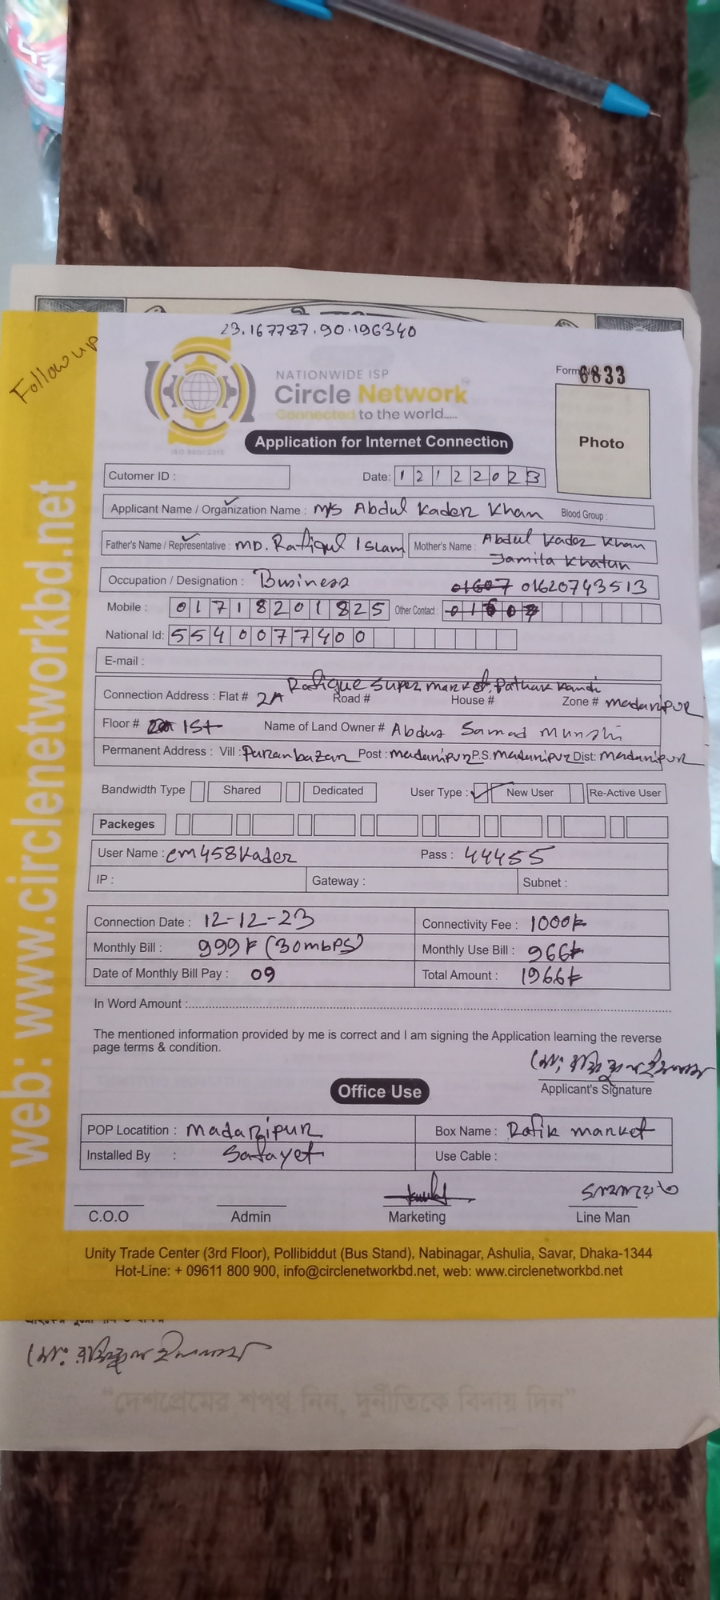 23.167787.90.196340
Follow up
NATIONWIDE ISP
Circle Network
Connected to the world.....
ISO 9001:2015
Form 6833
Photo
Application for Internet Connection
Cutomer ID :
Date: 12122023
Applicant Name / Organization Name : M/S Abdul Kader Khan Blood Group :
Father's Name / Representative : MD. Rafiqul Islam Mother's Name : Abdul Kader Khan
Jamila Khatun
Occupation / Designation : Business 01607 01620743513
Mobile : 01718201825 Other Contact 01607
National Id: 5540077400
E-mail :
Rafique Super market, Pathak Kandi
Connection Address : Flat # 2A Road # House # Zone # madaripur
Floor # 1st Name of Land Owner # Abdus Samad Munshi
Permanent Address : Vill : Puranbazar Post : madaripur P.S. madaripur Dist: madaripur
Bandwidth Type Shared Dedicated User Type : ✓ New User Re-Active User
Packeges
User Name : cm458Kader Pass : 44455
IP : Gateway : Subnet :
Connection Date : 12-12-23 Connectivity Fee : 1000৳
Monthly Bill : 999৳ (30mbps) Monthly Use Bill : 966৳
Date of Monthly Bill Pay : 09 Total Amount : 1966৳
In Word Amount :
The mentioned information provided by me is correct and I am signing the Application learning the reverse
page terms & condition.
মোঃ রফিকুল ইসলাম
Applicant's Signature
Office Use
POP Locatition : Madaripur Box Name : Rafik market
Installed By : Safayet Use Cable :
C.O.O Admin Marketing Line Man
Unity Trade Center (3rd Floor), Pollibiddut (Bus Stand), Nabinagar, Ashulia, Savar, Dhaka-1344
Hot-Line: + 09611 800 900, info@circlenetworkbd.net, web: www.circlenetworkbd.net
web: www.circlenetworkbd.net
মোঃ রফিকুল ইসলাম
"দেশপ্রেমের শপথ নিন, দুর্নীতিকে বিদায় দিন"